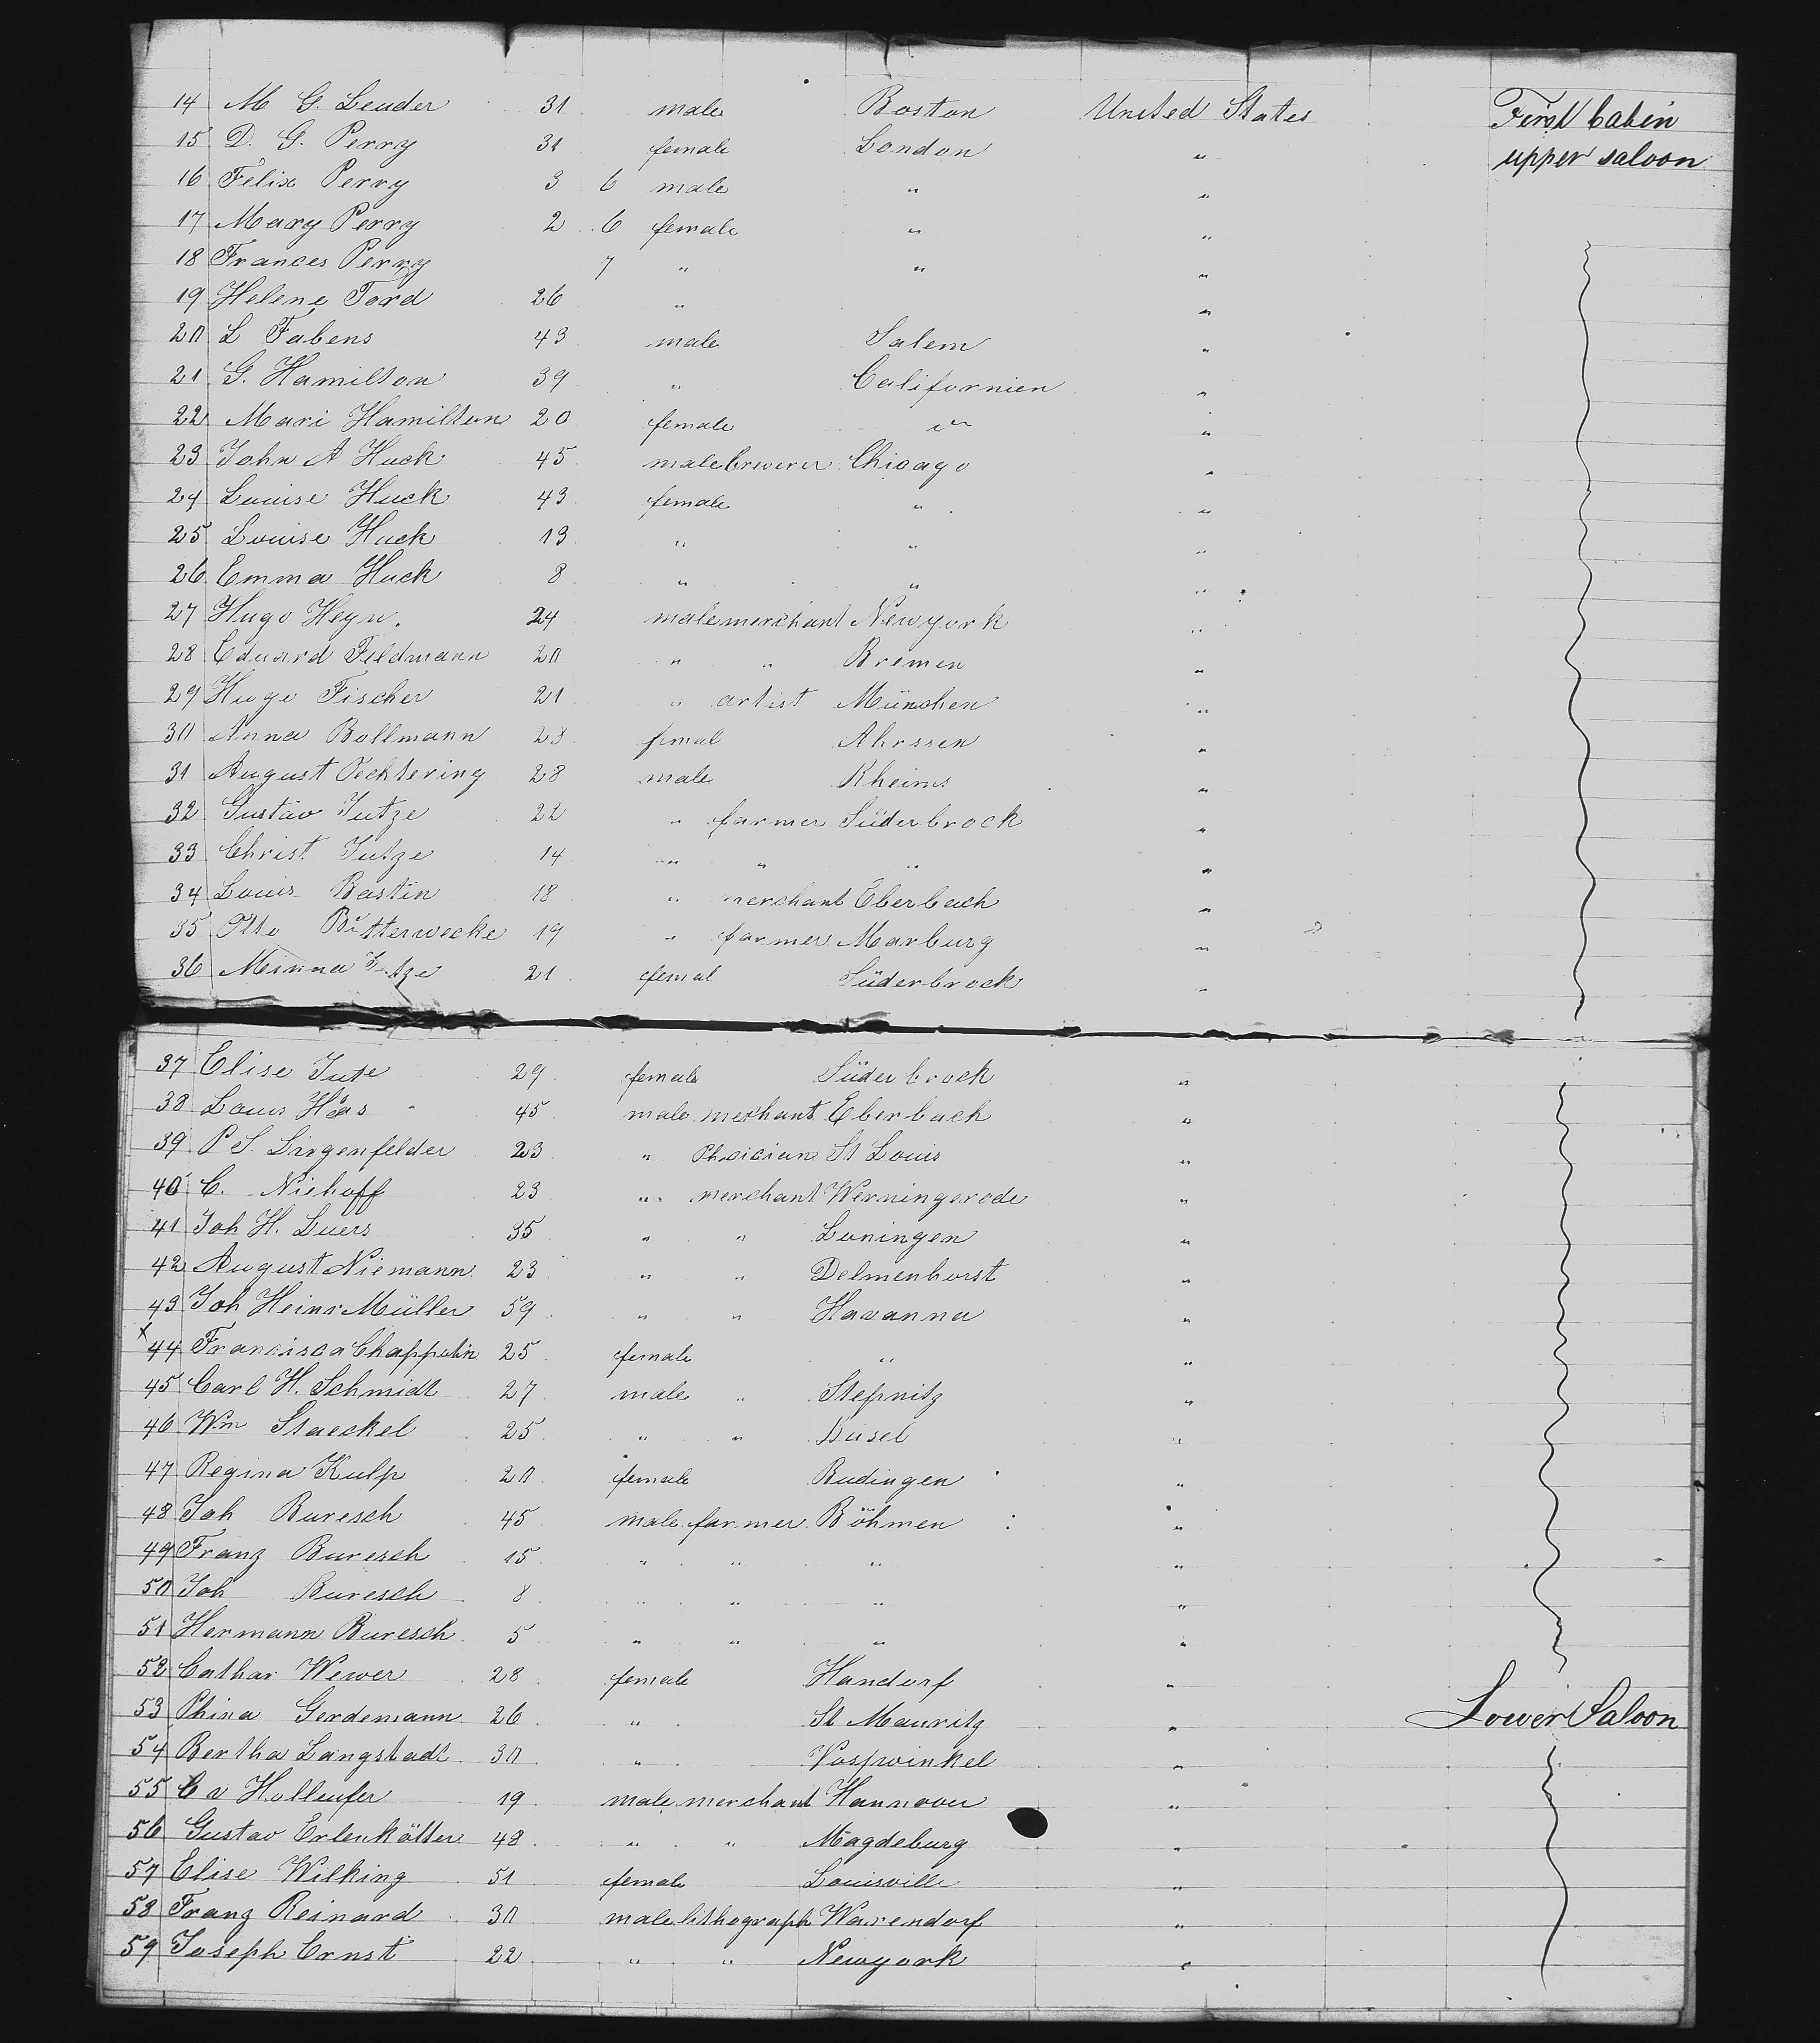 14 M G. Leuder 31 male Boston United States First Cabin
15 D. G. Perry 31 female London " upper saloon
16 Felix Perry 3 6 male " "
17 Mary Perry 2 6 female " "
18 Frances Perry 7 " " "
19 Helene Ford 26 " "
20 L Fabens 43 male Salem "
21 G. Hamilton 39 " Californien "
22 Mari Hamilton 20 female " "
23 John A Huck 45 male brwerer Chicago "
24 Louise Huck 43 female " "
25 Louise Huck 13 " " "
26 Emma Huck 8 " " "
27 Hugo Heyn. 24 male merchant Newyork "
28 Eduard Feldmann 20 " " Bremen "
29 Hugo Fischer 21 " artist München "
30 Anna Bollmann 23 femal Ahrssen "
31 August Oechtering 28 male Rheims "
32 Gustav Jutze 22 " farmer Süderbrock "
33 Christ Jutze 14 " " " "
34 Louis Bastin 18 " merchant Eberbach "
35 Otto Bitterwecke 19 " farmer Marburg "
36 Minna Jutze 21 femal Süderbrock "
37 Elise Jute 29 female Süderbrock "
38 Louis Haas 45 male merchant Eberbach "
39 P S. Lingenfelder 23 " Phsician St Louis "
40 C. Niehoff 23 " merchant Werningerode "
41 Joh H. Luers 35 " " Loningen "
42 August Niemann 23 " " Delmenhorst "
43 Joh Heinr Müller 59 " " Havanna "
x 44 Francisca Chappotin 25 female " "
45 Carl H. Schmidt 27 male " Stepnitz "
46 Wm Staeckel 25 " " Busel "
47 Regina Kulp 20 female Budingen "
48 Joh Buresch 45 male farmer Böhmen "
49 Franz Buresch 15 " " " "
50 Joh Buresch 8 " " " "
51 Hermann Buresch 5 " " " "
52 Cathar Wewer 28 female Handorf "
53 Phina Gerdemann 26 " St Mauritz " Lower Saloon
54 Bertha Langstadt 30 " Vosswinkel "
55 C v Holleufer 19 male merchant Hannover "
56 Gustav Erlenkötter 48 " " Magdeburg "
57 Elise Wilking 51 female Louisville "
58 Franz Reinard 30 male lithograph Warendorf "
59 Joseph Ernst 22 " " Newyork "